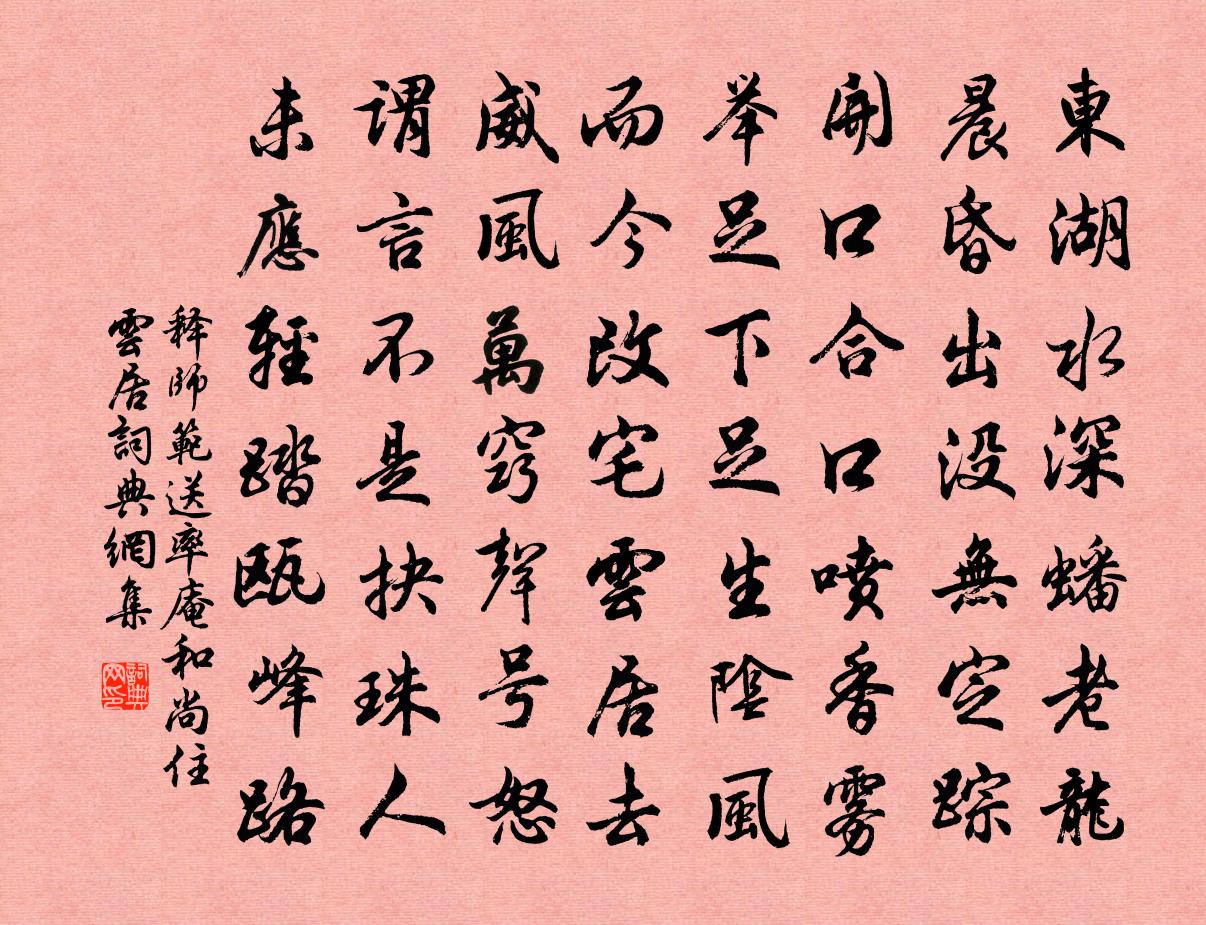 東湖水深蟠老龍
晨昏出没無定踪
開口合口喷香雾
举足下足生陰風
而今改宅雲居去
威風萬窍聲号怒
謂言不是抉珠人
未應輕踏甌峰路
释師範送率庵和尚住
雲居詞典網集
詞典
网印